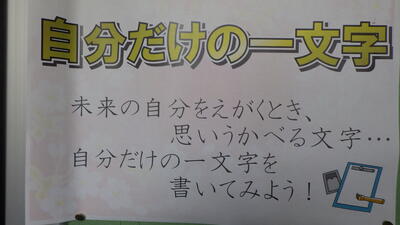 自分だけの一文字
未来の自分をえがくとき、
思いうかべる文字…
自分だけの一文字を
書いてみよう！